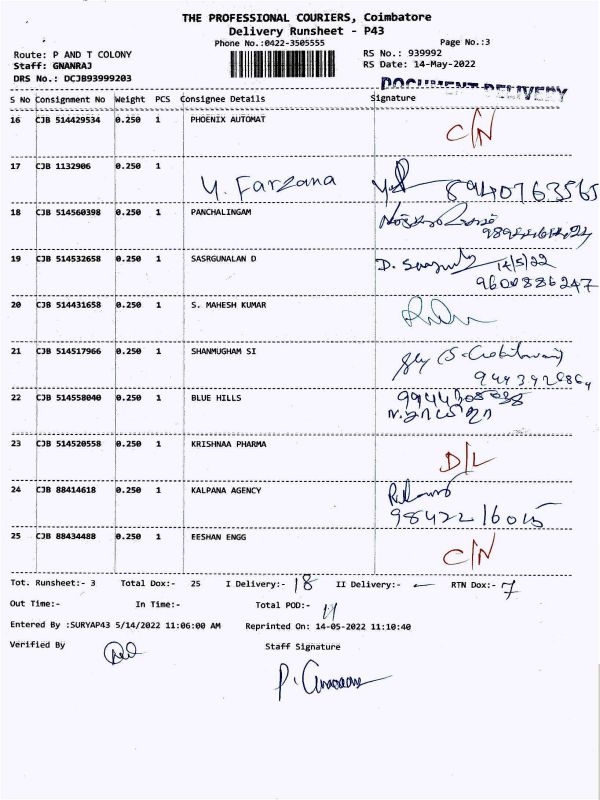 THE PROFESSIONAL COURIERS, Coimbatore
Delivery Runsheet - P43
Phone No.:0422-3505555
Page No.:3
Route: P AND T COLONY
RS No.: 939992
Staff: GNANRAJ
RS Date: 14-May-2022
DRS No.: DCJB93999203
DOCUMENT DELIVERY
S No Consignment No Weight PCS Consignee Details Signature
16 CJB 514429534 0.250 1 PHOENIX AUTOMAT C/N
17 CJB 1132906 0.250 1 Y. Farzana 8940763565
18 CJB 514560398 0.250 1 PANCHALINGAM
19 CJB 514532658 0.250 1 SASRGUNALAN D D. 14/5/22
9600886247
20 CJB 514431658 0.250 1 S. MAHESH KUMAR
21 CJB 514517966 0.250 1 SHANMUGHAM SI
22 CJB 514558040 0.250 1 BLUE HILLS
23 CJB 514520558 0.250 1 KRISHNAA PHARMA D/L
24 CJB 88414618 0.250 1 KALPANA AGENCY
98422 16015
25 CJB 88434488 0.250 1 EESHAN ENGG C/N
Tot. Runsheet:- 3 Total Dox:- 25 I Delivery:- 18 II Delivery:- - RTN Dox:- 7
Out Time:- In Time:- Total POD:- 11
Entered By :SURYAP43 5/14/2022 11:06:00 AM Reprinted On: 14-05-2022 11:10:40
Verified By Staff Signature